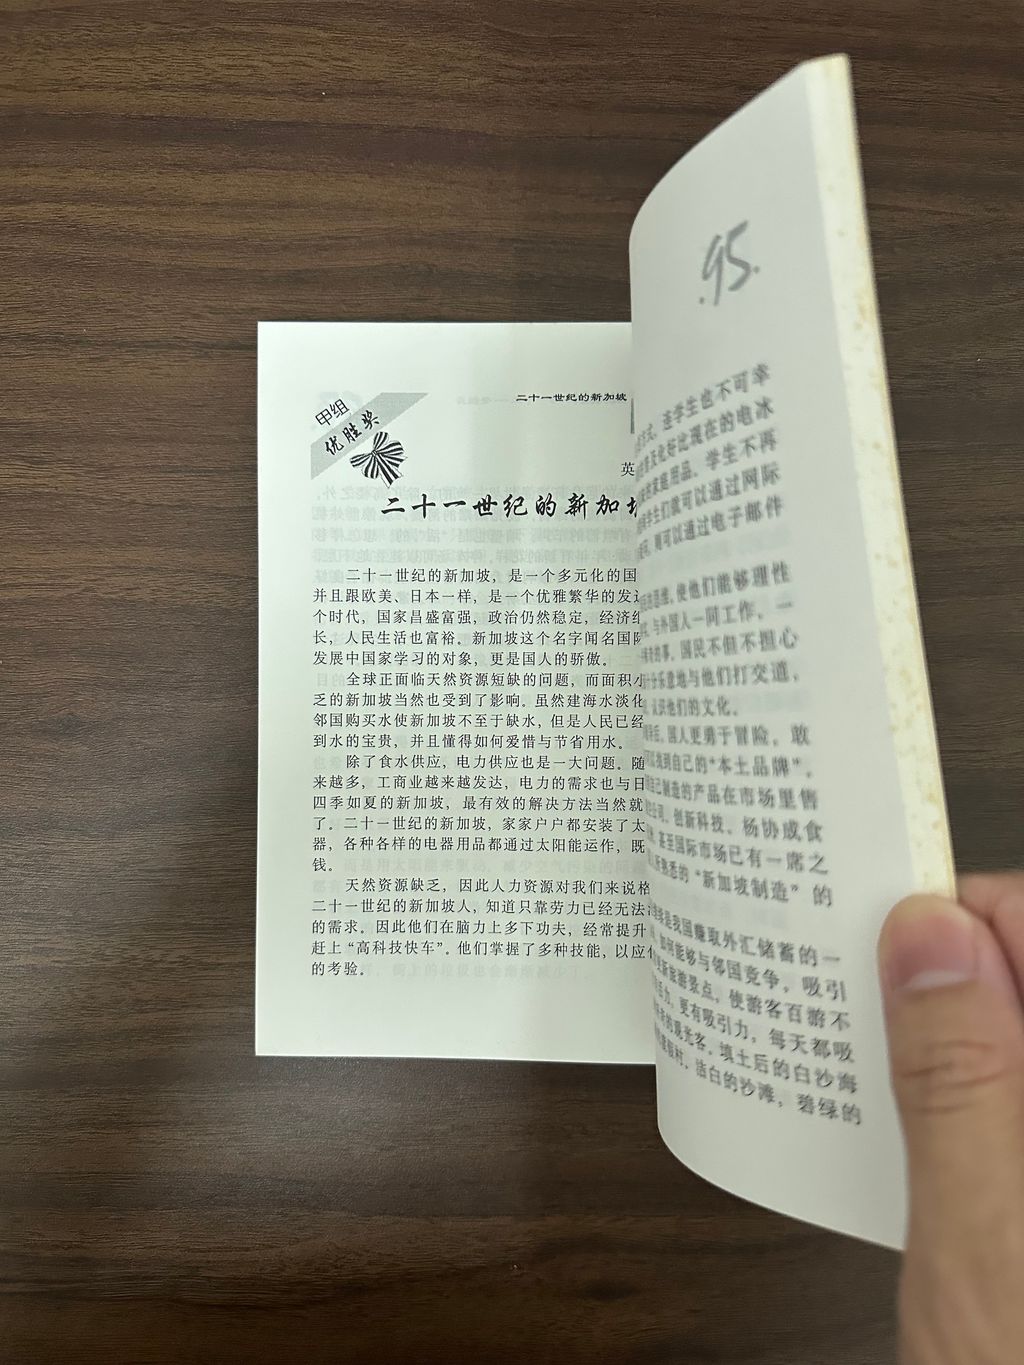 二十一世纪的新加坡
甲组
优胜奖
英
二十一世纪的新加
二十一世纪的新加坡，是一个多元化的国
并且跟欧美、日本一样，是一个优雅繁华的发达
个时代，国家昌盛富强，政治仍然稳定，经济
长，人民生活也富裕。新加坡这个名字闻名国际
发展中国家学习的对象，更是国人的骄傲。
全球正面临天然资源短缺的问题，而面积小
乏的新加坡当然也受到了影响。虽然建海水淡化
邻国购买水使新加坡不至于缺水，但是人民已经
到水的宝贵，并且懂得如何爱惜与节省用水。
除了食水供应，电力供应也是一大问题。随
来越多，工商业越来越发达，电力的需求也与日
四季如夏的新加坡，最有效的解决方法当然就
了。二十一世纪的新加坡，家家户户都安装了太
器，各种各样的电器用品都通过太阳能运作，既
钱。
天然资源缺乏，因此人力资源对我们来说格
二十一世纪的新加坡人，知道只靠劳力已经无法
的需求。因此他们在脑力上多下功夫，经常提升
赶上“高科技快车”。他们掌握了多种技能，以应
的考验。
.95.
方式，连学生也不可幸
普及化好比现在的电冰
的家庭用品。学生不再
学生们就可以通过网际
，则可以通过电子邮件
思维，使他们能够理性
，与外国人一同工作。一
的事，国民不但不担心
十分乐意地与他们打交道，
，认识他们的文化。
后，国人更勇于冒险，敢
可以找到自己的“本土品牌”。
自己制造的产品在市场里售
公司，创新科技、杨协成食
，甚至国际市场已有一席之
熟悉的“新加坡制造”的
是我国赚取外汇储蓄的一
，如何能够与邻国竞争，吸引
新旅游景点，使游客百游不
活力，更有吸引力，每天都吸
的观光客，填土后的白沙海
度假村，洁白的沙滩，碧绿的